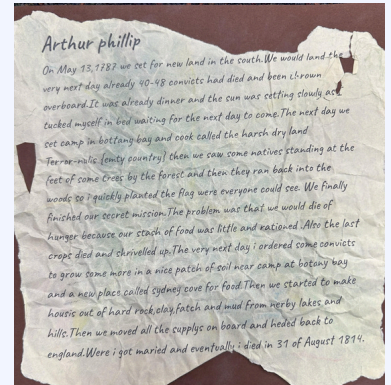 Arthur phillip
On May 13,1787 we set for new land in the south.We would land the
very next day already 40-48 convicts had died and been thrown
overboard.It was already dinner and the sun was setting slowly as I
tucked myself in bed waiting for the next day to come.The next day we
set camp in bottany bay and cook called the harsh dry land
Terror-nulis [emty country] then we saw some natives standing at the
feet of some trees by the forest and then they ran back into the
woods so i quickly planted the flag were everyone could see. We finally
finished our secret mission.The problem was that we would die of
hunger because our stash of food was little and rationed .Also the last
crops died and shrivelled up.The very next day i ordered some convicts
to grow some more in a nice patch of soil near camp at botony bay
and a new place called sydney cove for food.Then we started to make
housis out of hard rock,clay,fatch and mud from nerby lakes and
hills.Then we moved all the supplys on board and heded back to
england.Were i got maried and eventually i died in 31 of August 1814.